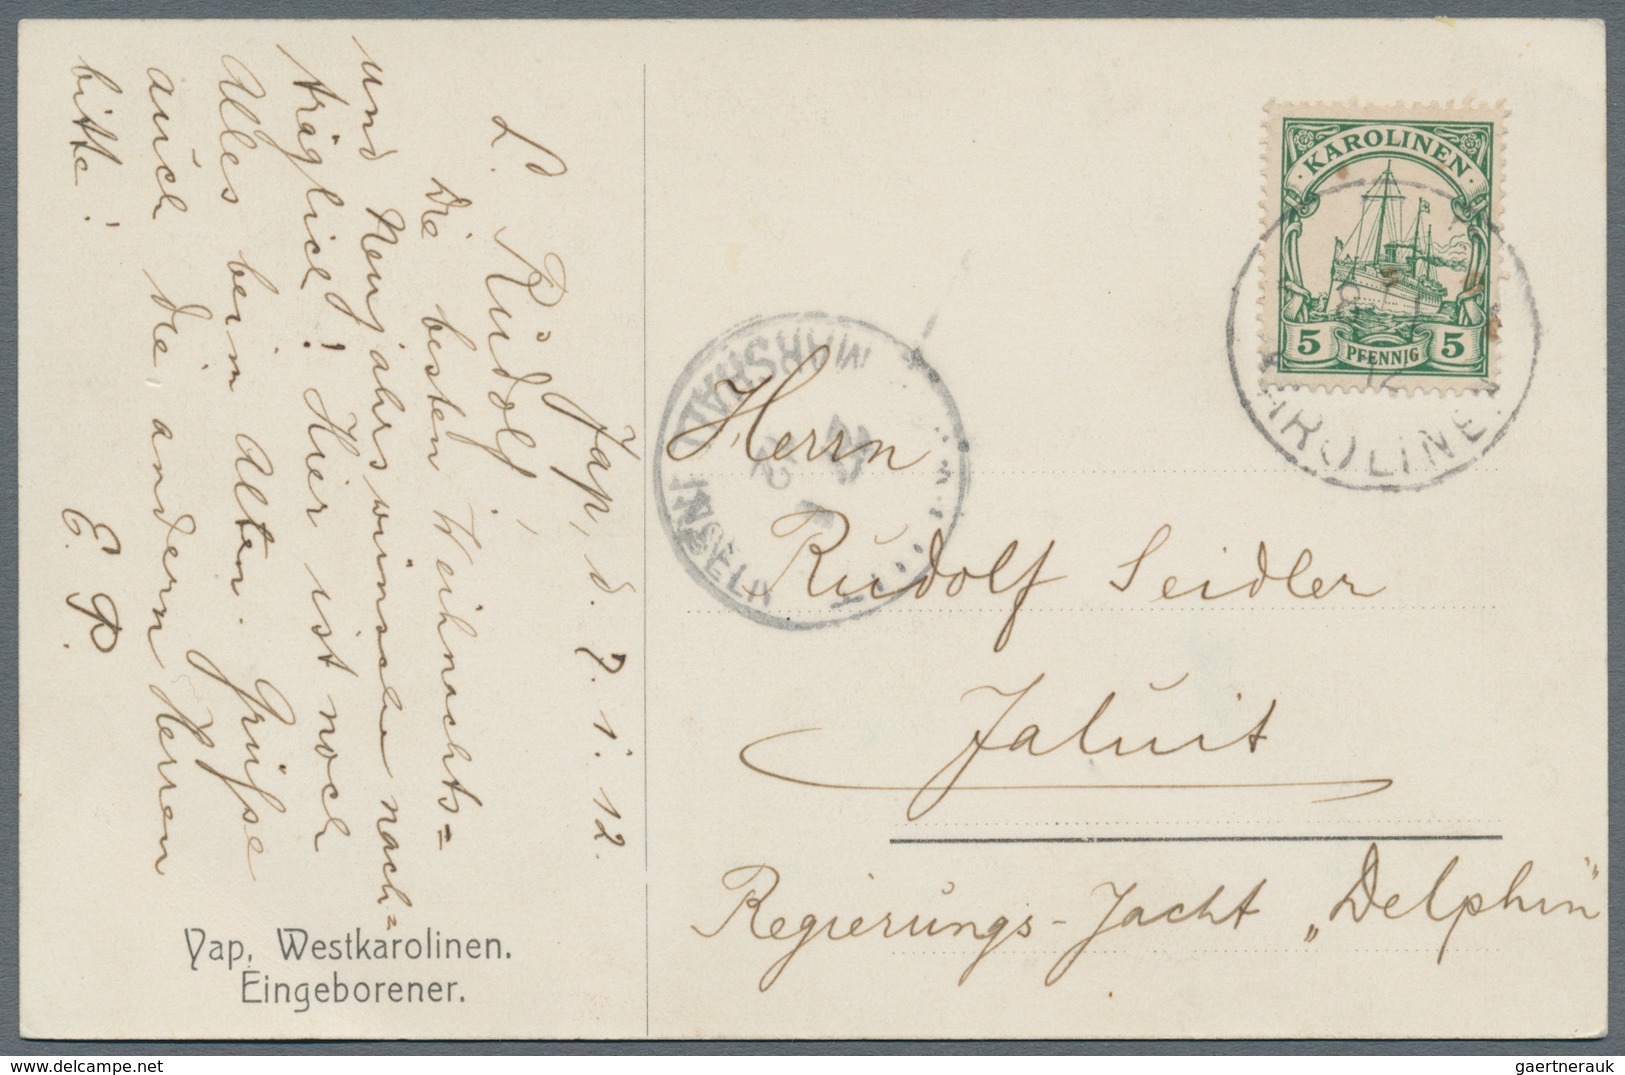 Jap, d. 7.1.12.
L. Rudolf!
Die besten Weihnachts=
und Neujahrswünsche nach=
träglich! Hier ist noch
Alles beim Alten. Grüsse
auch die andern Herren
bitte!
E. P.
Yap, Westkarolinen.
Eingeborener.
KAROLINEN
5 PFENNIG 5
KAROLINEN
MARSHALL INSELN
Herrn
Rudolf Seidler
Jaluit
Regierungs-Jacht „Delphin"
gaertnerauk